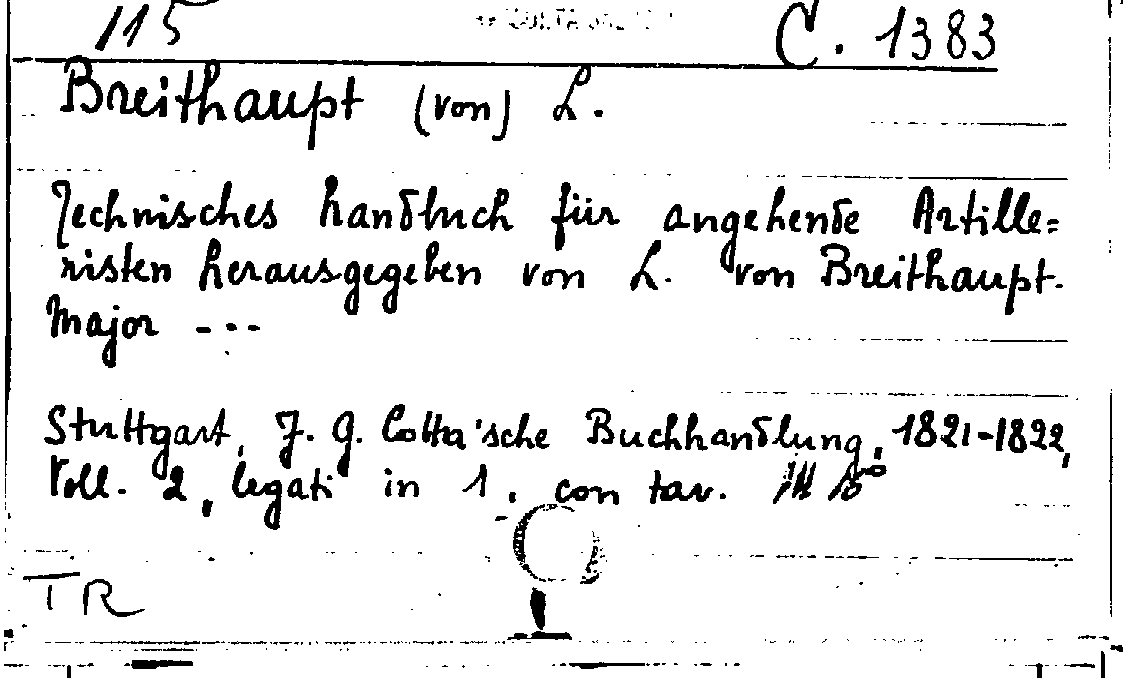 115 C. 1383
Breithaupt (von) L.
Technisches handbuch für angehende Artille=
risten herausgegeben von L. von Breithaupt.
Major ---
Stuttgart, J. G. Cotta'sche Buchhandlung, 1821-1822,
Voll. 2, legati in 1, con tav. in
TR